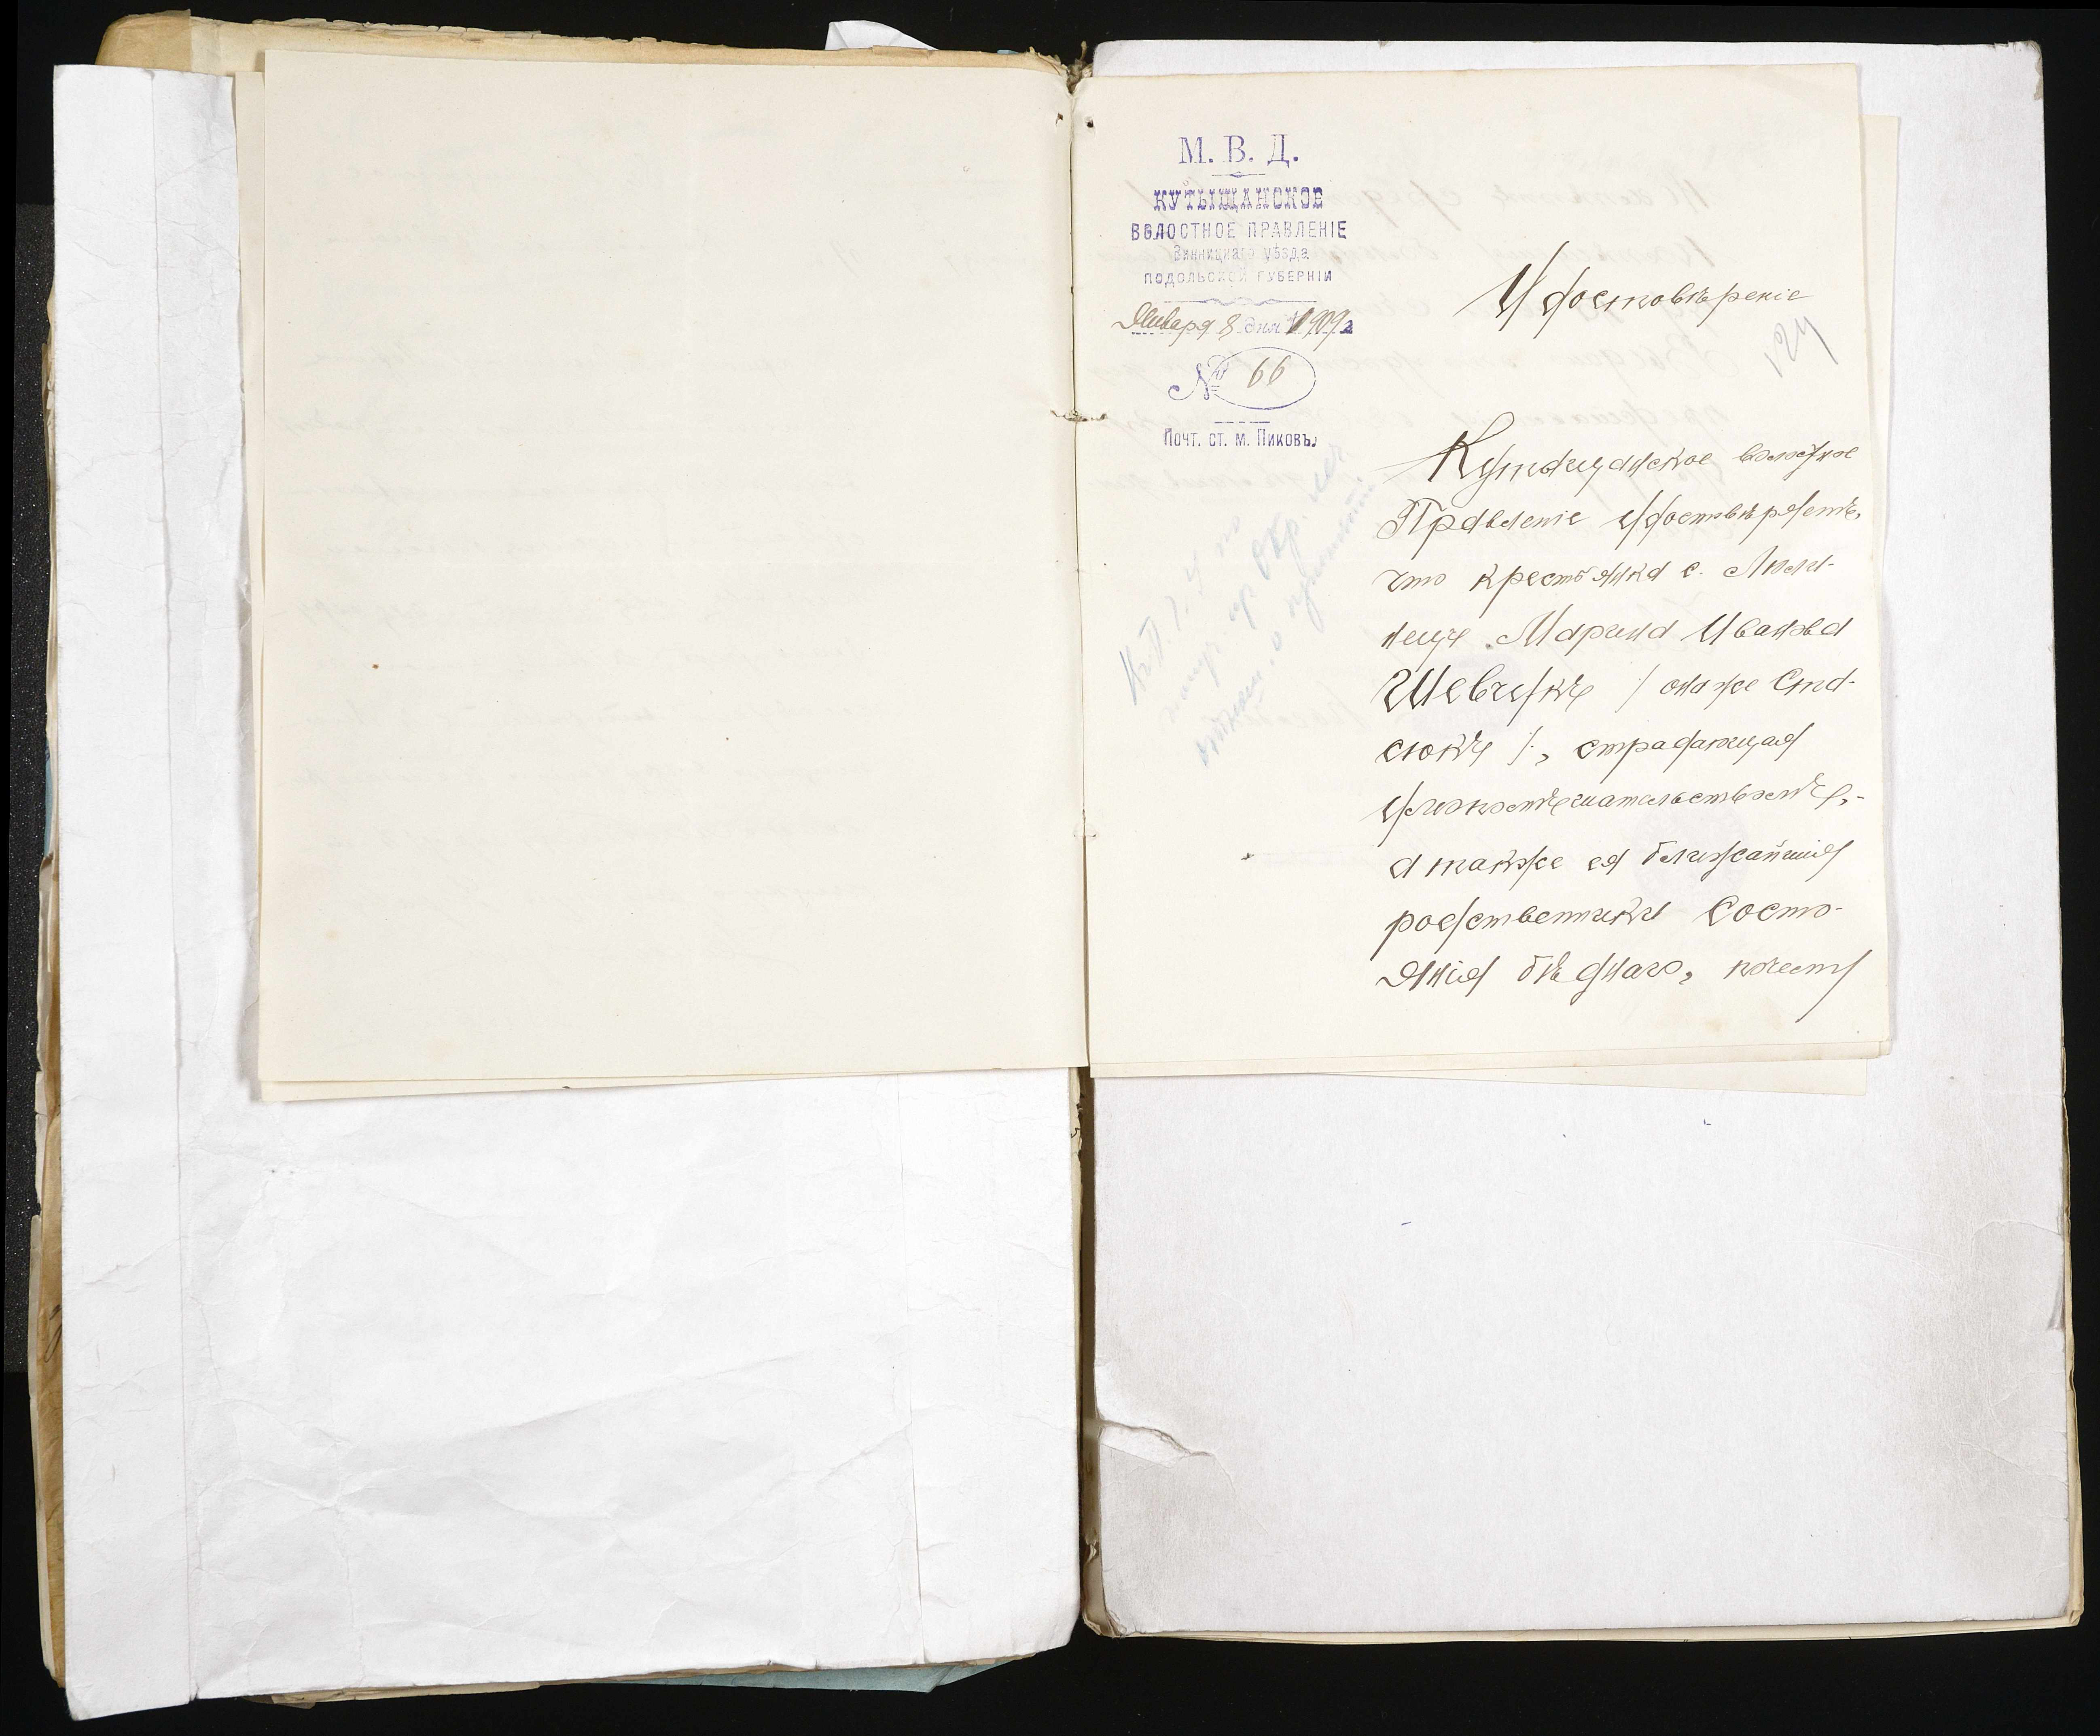 М. В. Д.
КУТЫЩАНСКОЕ
ВОЛОСТНОЕ ПРАВЛЕНІЕ
Винницкаго уѣзда
ПОДОЛЬСКОЙ ГУБЕРНІИ
Января 8 дня 1909 г
№ 66
Почт. ст. м. Пиковъ
Удостовѣреніе
124
Кутыщанское волостное
Правленіе удостовѣряетъ,
что крестьянка с. Люли-
нецъ Марина Иванова
Шевчукъ /: она же Ста-
сюкъ :/, страдающая
умопомѣшательствомъ,-
а также ея ближайшія
родственники Состо-
янія бѣднаго, почему